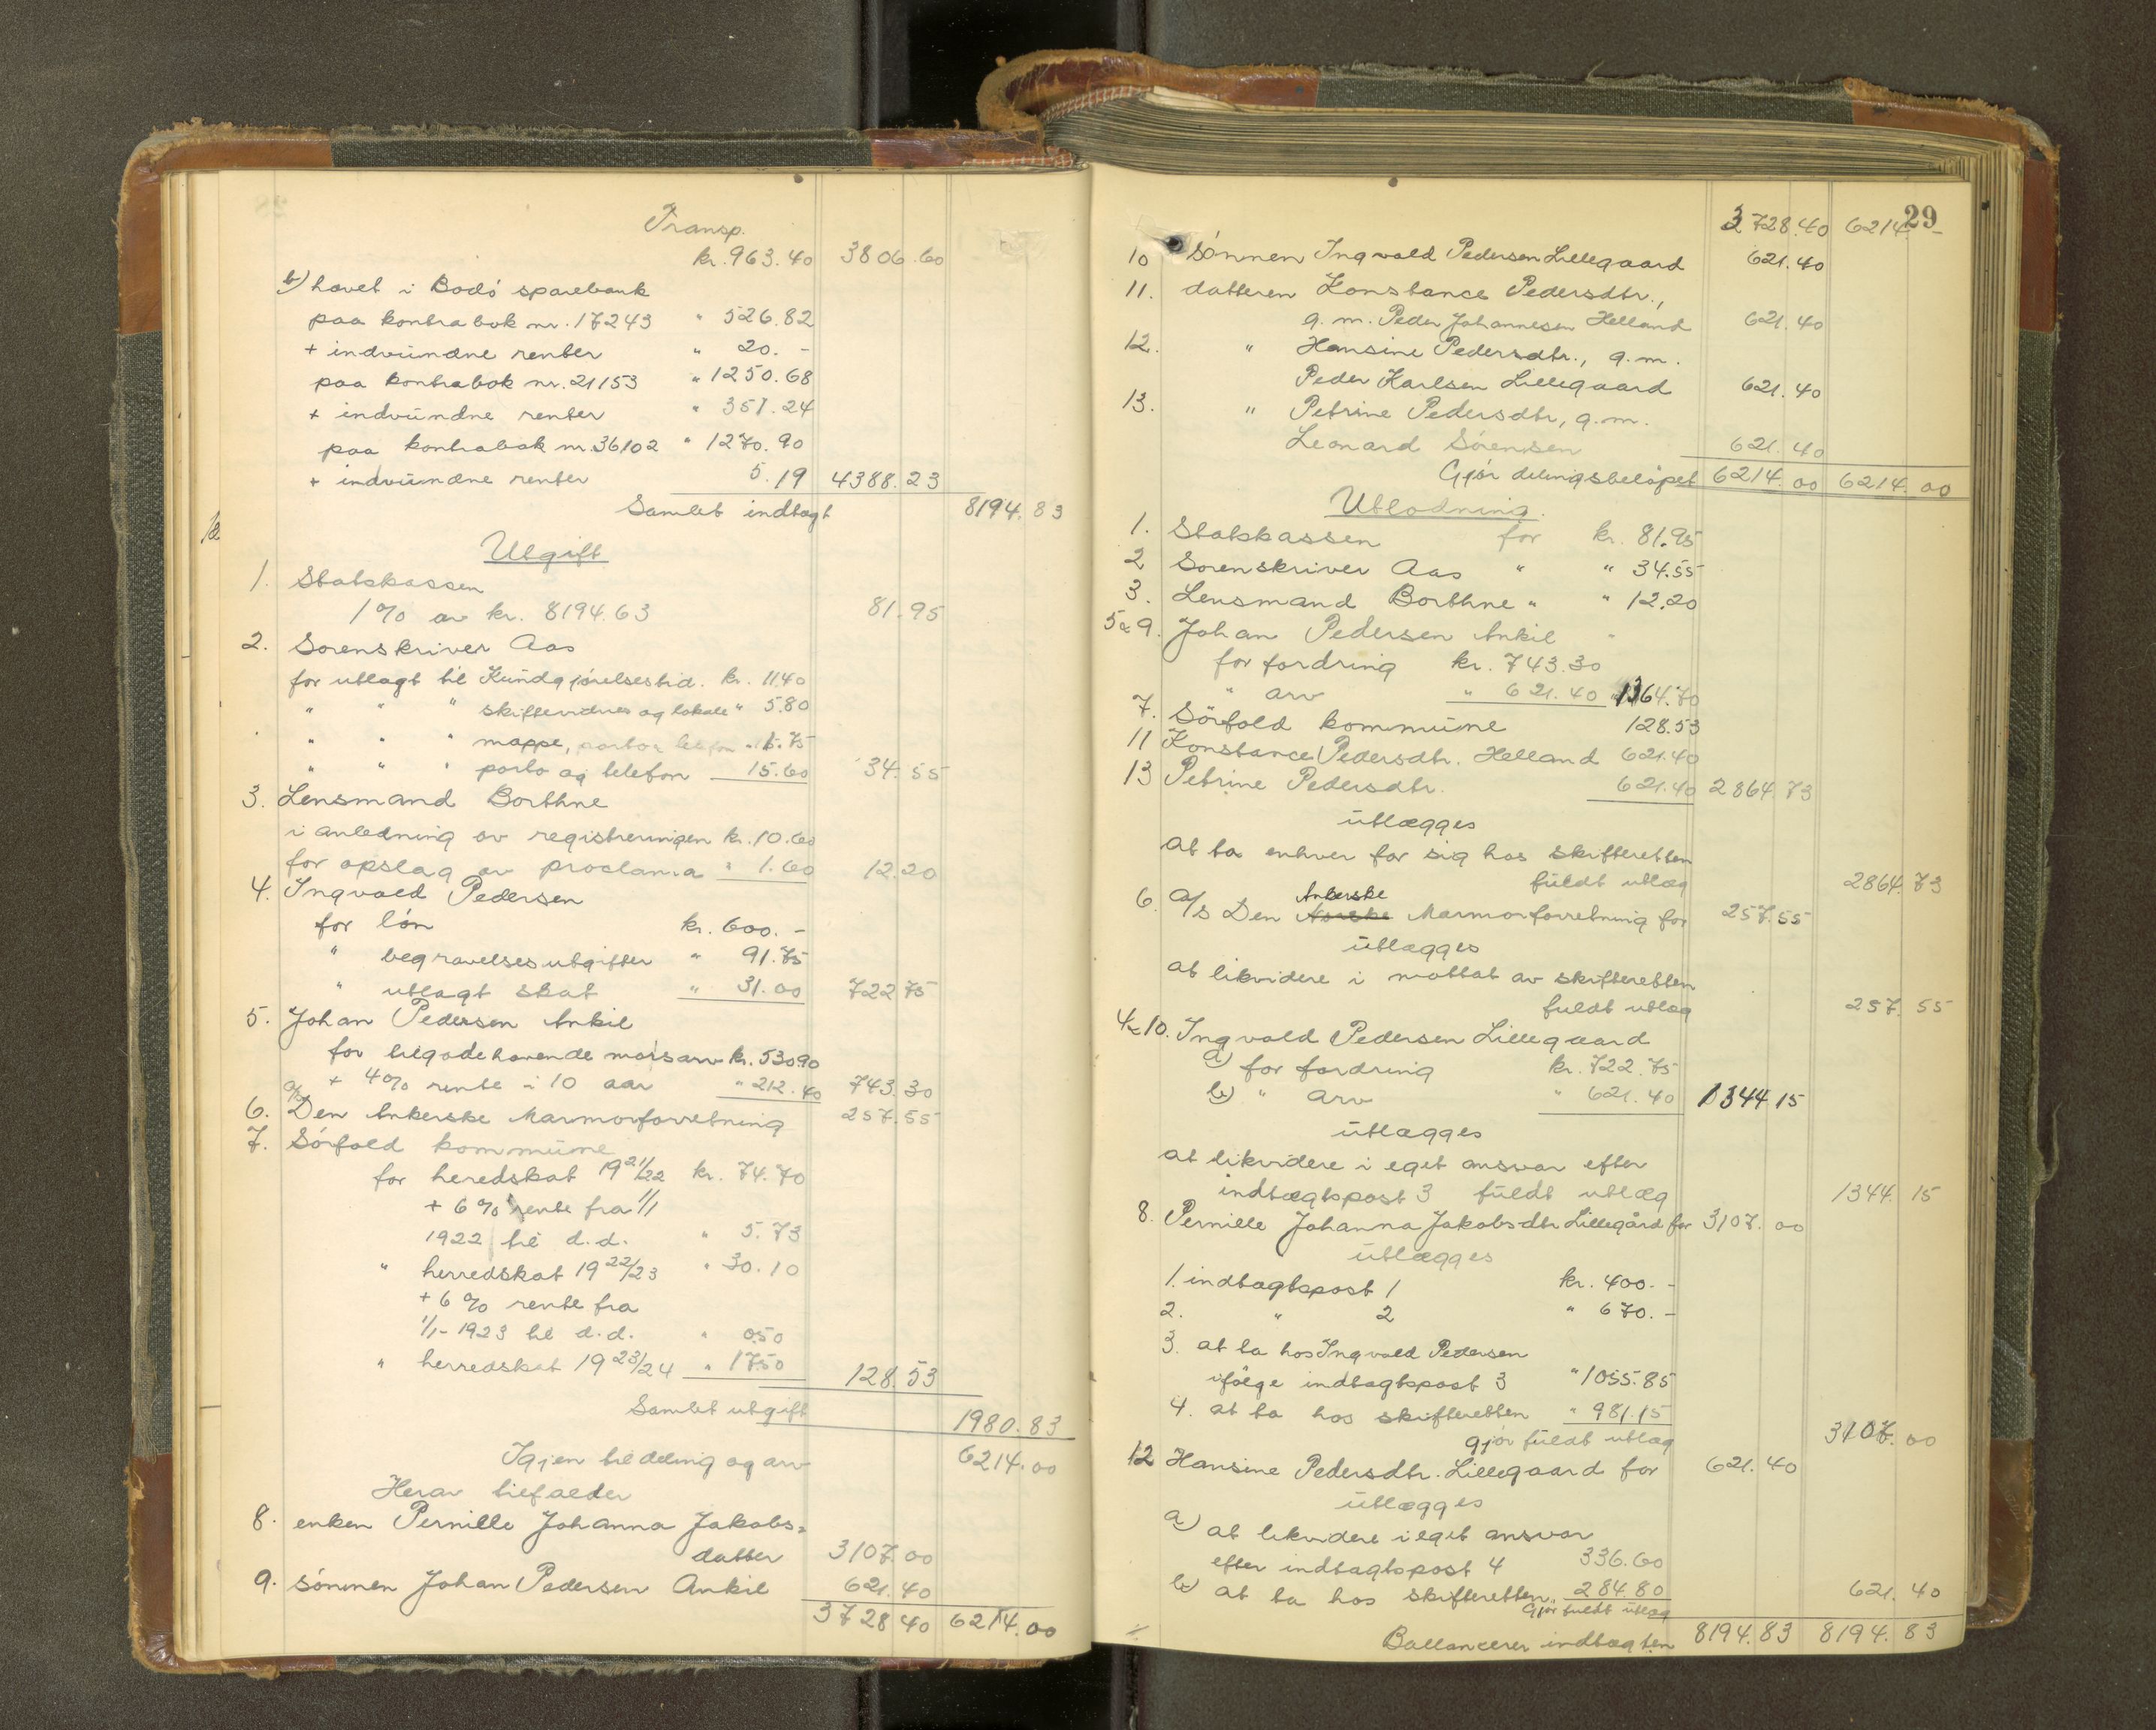 Transp.
kr. 963.40 3806.60
b) hævet i Bodö sparebank
paa kontrabok nr. 17243 " 526.82
+ indvundne renter " 20.-
paa kontrabok nr. 21153 " 1250.68
+ indvundne renter " 351.24
paa kontrabok nr. 36102 " 1270.90
+ indvundne renter 5.19 4388.23
Samlet indtægt 8194.83
Utgift
1. Statskassen
1% av kr. 8194.63 81.95
2. Sorenskriver Aas
for utlagt til Kundgjörelsestid. kr. 11.40
" " " skiftevidner og lokale " 5.80
" " " mappe, porto & telefon " 1.75
" " " porto og telefon 15.60 34.55
3. Lensmand Borthne
i anledning av registreringen kr. 10.60
for opslag av proclama " 1.60 12.20
4. Ingvald Pedersen
for lön kr. 600.-
" begravelsesutgifter " 91.75
" utlagt skat " 31.00 722.75
5. Johan Pedersen Ankil
for tilgodehavende morsarv kr. 530.90
+ 4% rente i 10 aar " 212.40 743.30
6. A/S Den Ankerske Marmorforretning 257.55
7. Sörfold kommune
for heredskat 1921/22 kr. 74.70
+ 6% rente fra 1/1
1922 til d.d. " 5.73
" herredskat 1922/23 " 30.10
+ 6% rente fra
1/1-1923 til d.d. " 0.50
" herredskat 1923/24 " 17.50 128.53
Samlet utgift 1980.83
Igjen til deling og arv 6214.00
Herav tilfalder
8. enken Pernille Johanna Jakobs-
datter 3107.00
9. sönnen Johan Pedersen Ankil 621.40
3728.40 6214.00
29
3728.40 6214.-
10 sönnen Ingvald Pedersen Lillegaard 621.40
11. datteren Konstance Pedersdtr.,
g. m. Peder Johannesen Helland 621.40
12. " Hansine Pedersdtr., g. m.
Peder Karlsen Lillegaard 621.40
13. " Petrine Pedersdtr, g. m.
Leonard Sörensen 621.40
Gjör delingsbelöpet 6214.00 6214.00
Utlodning.
1. Statskassen for kr. 81.95
2 Sorenskriver Aas " " 34.55
3. Lensmand Borthne " " 12.20
5 & 9. Johan Pedersen Ankil "
for fordring kr. 743.30
" arv " 621.40 " 1364.70
7. Sörfold kommune 128.53
11 Konstance Pedersdtr. Helland 621.40
13 Petrine Pedersdtr. 621.40 2864.73
utlægges
at ta enhver for sig hos skifteretten
fuldt utlæg 2864.73
Ankerske
6. A/S Den Norske Marmorforretning for 257.55
utlægges
at likvidere i mottat av skifteretten
fuldt utlæg 257.55
4 & 10. Ingvald Pedersen Lillegaard
a) for fordring kr. 722.75
b) " arv " 621.40 1344.15
utlægges
at likvidere i eget ansvar efter
indtægtspost 3 fuldt utlæg 1344.15
8. Pernille Johanna Jakobsdtr Lillegård for 3107.00
utlægges
1. indtægtspost 1 kr. 400.-
2. " 2 " 670.-
3. at ta hos Ingvald Pedersen
ifölge indtægtspost 3 " 1055.85
4. at ta hos skifteretten " 981.15
gjör fuldt utlæg 3107.00
12 Hansine Pedersdtr. Lillegaard for 621.40
utlægges
a) at likvidere i eget ansvar
efter indtægtspost 4 336.60
b) at ta hos skifteretten " 284.80
gjör fuldt utlæg 621.40
Ballancerer indtægten 8194.83 8194.83